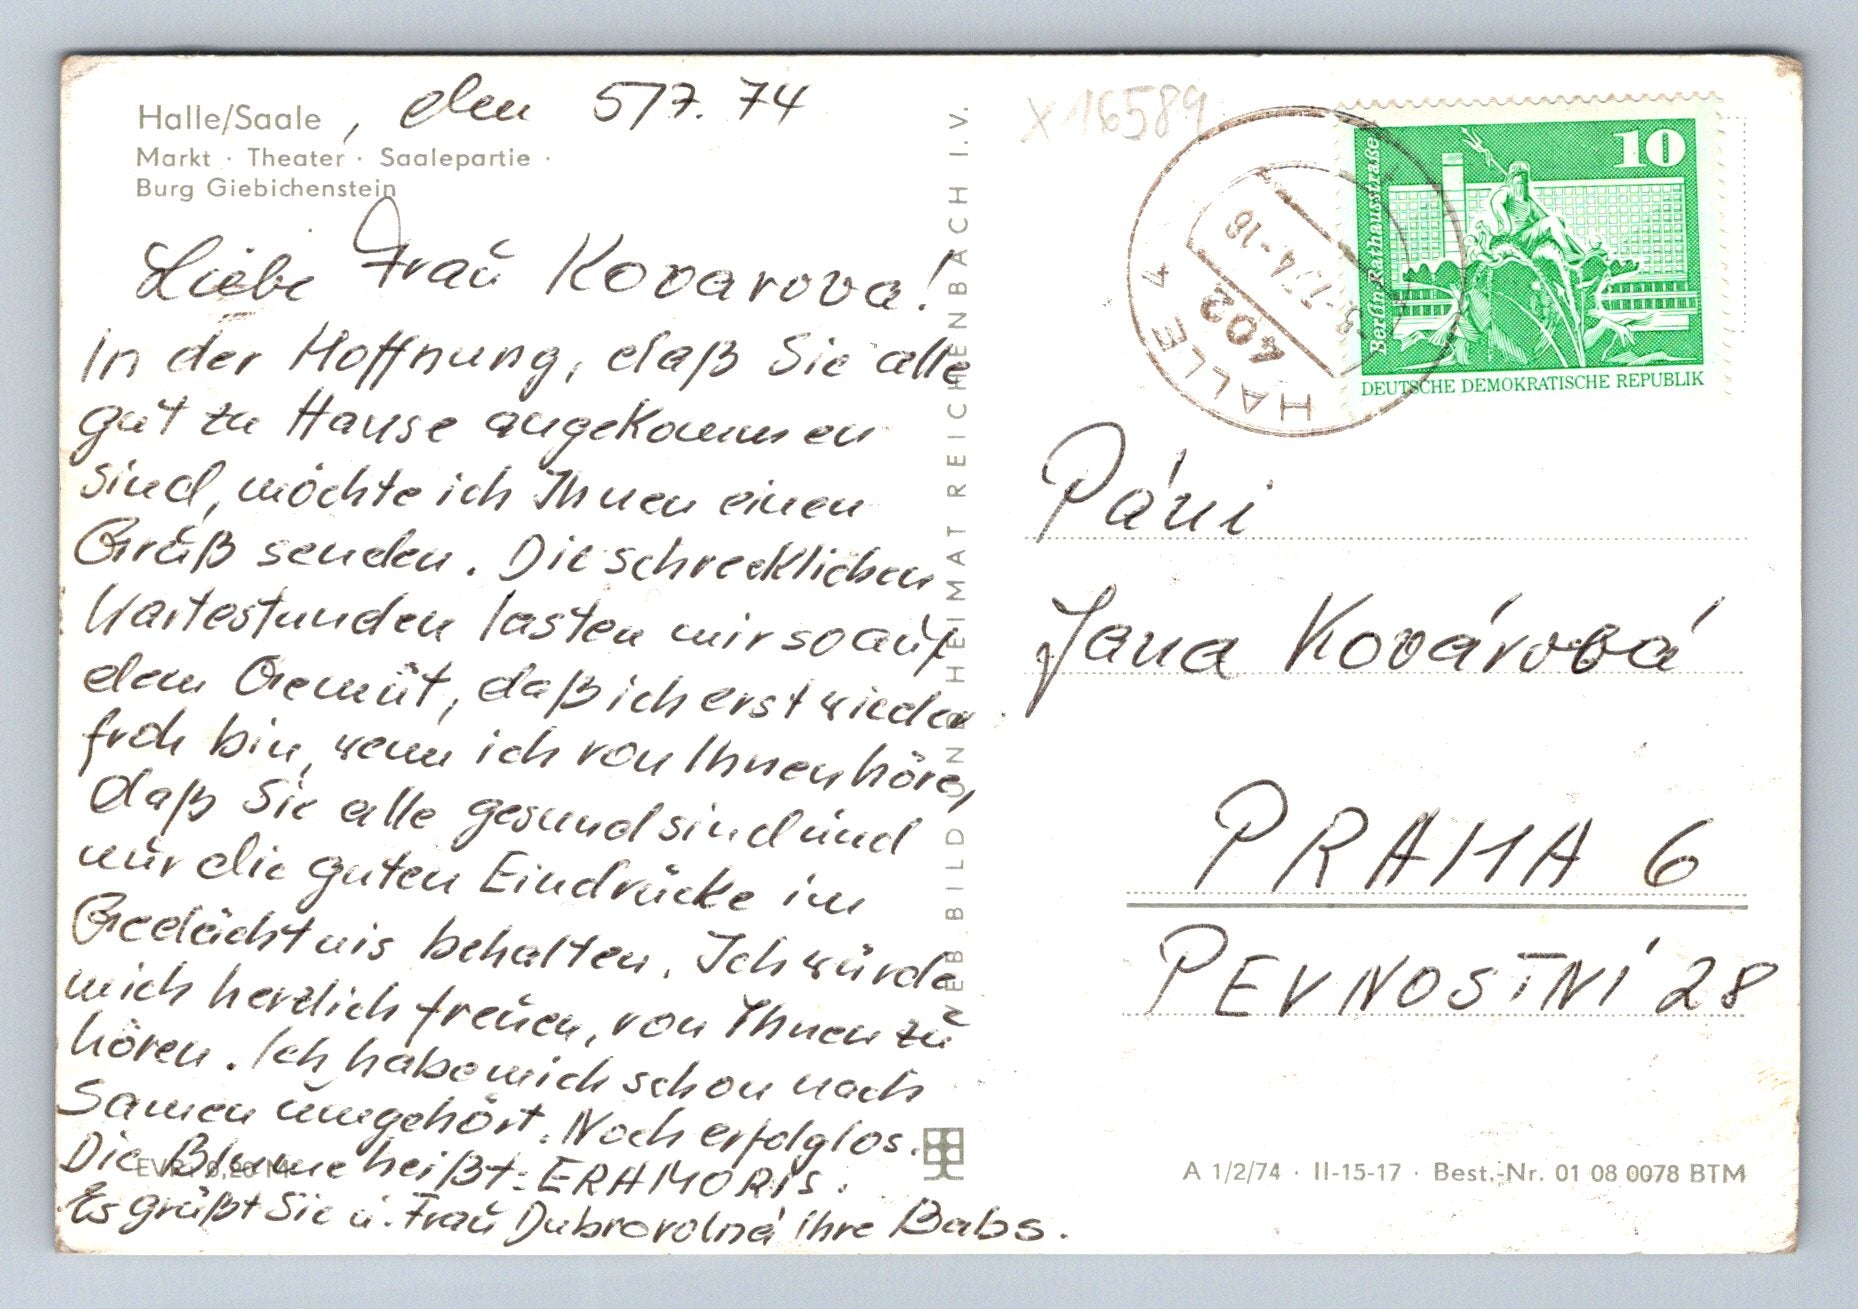 Halle/Saale, den 5/7. 74
Markt · Theater · Saalepartie ·
Burg Giebichenstein
Liebe Frau Kovarova!
In der Hoffnung, daß Sie alle
gut zu Hause angekommen
sind, möchte ich Ihnen einen
Gruß senden. Die schrecklichen
Wartestunden lasten mir so auf
dem Gemüt, daß ich erst wieder
froh bin, wenn ich von Ihnen höre,
daß Sie alle gesund sind und
nur die guten Eindrücke im
Gedächtnis behalten. Ich würde
mich herzlich freuen, von Ihnen zu
hören. Ich habe mich schon nach
Samen umgehört. Noch erfolglos.
Die Blume heißt: ERAMORIS.
Es grüßt Sie u. Frau Dubrovolná ihre Babs.
EVP 0,20 M
VEB BILD UND HEIMAT REICHENBACH I. V.
X 16589
HALLE 4
402
-7.74-18
10
Berlin Rathausstraße
DEUTSCHE DEMOKRATISCHE REPUBLIK
Páni
Jana Kovárová
PRAHA 6
PEVNOSTNÍ 28
A 1/2/74 · II-15-17 · Best.-Nr. 01 08 0078 BTM